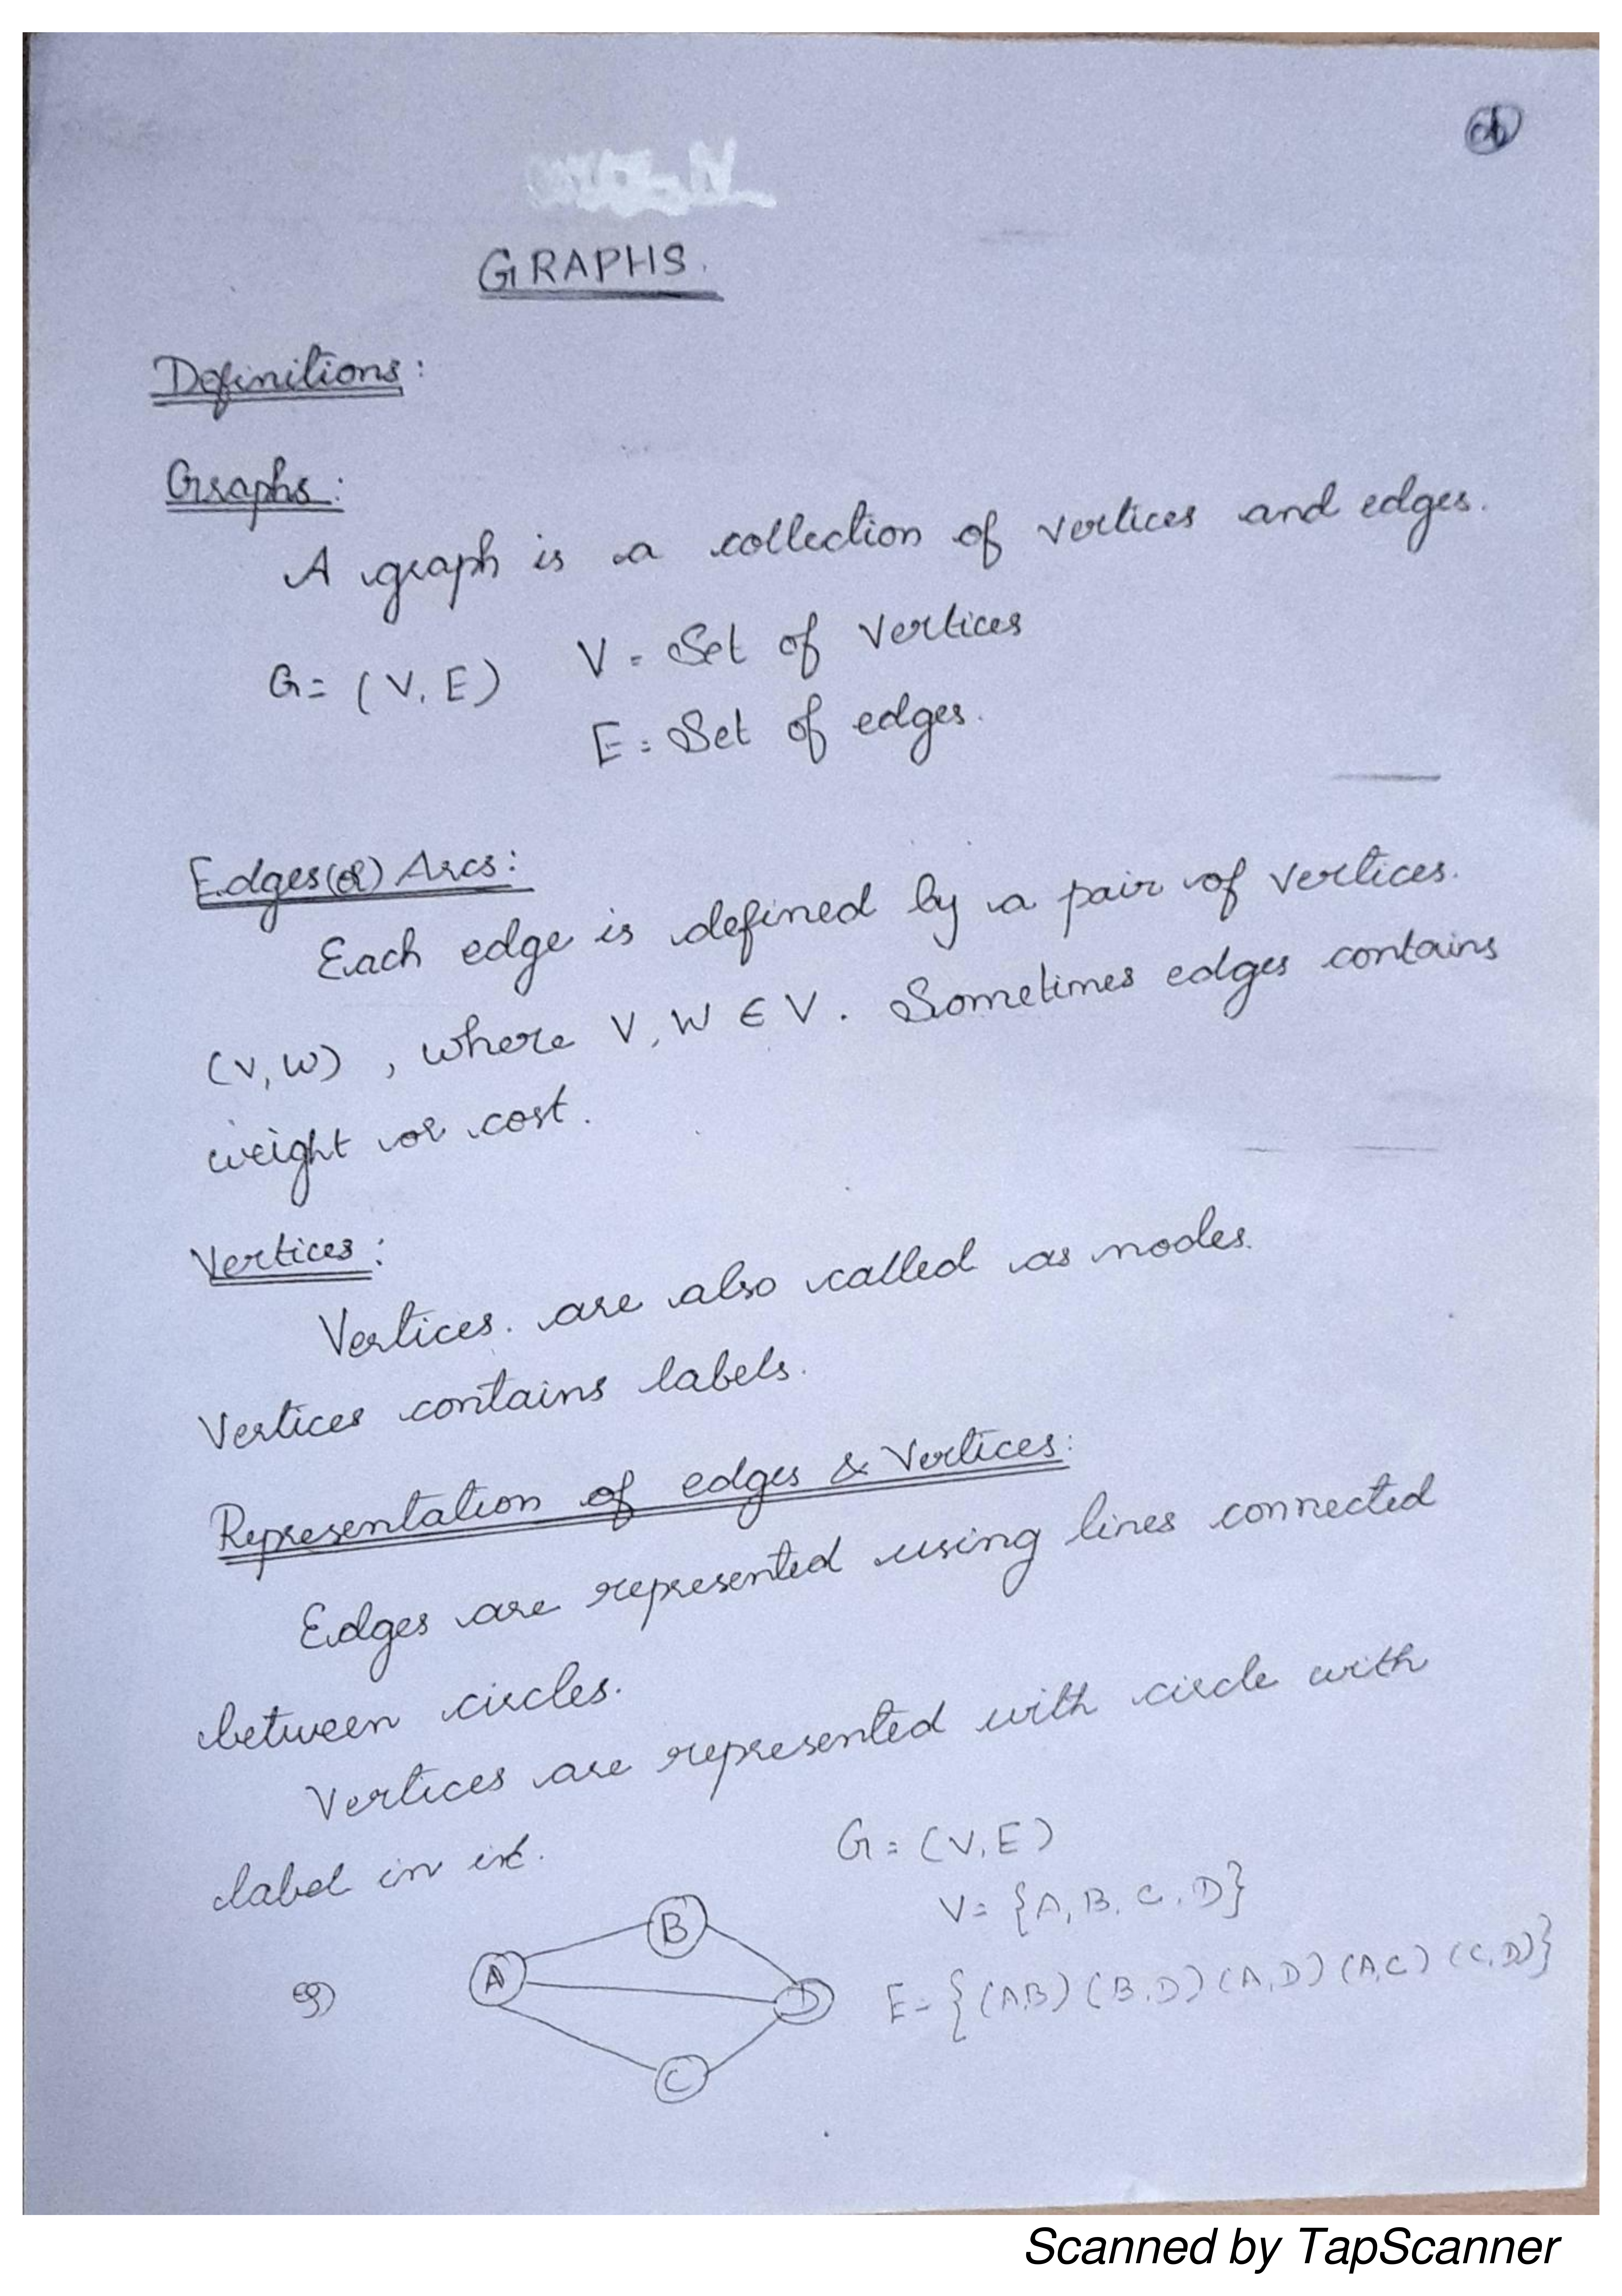 GRAPHS.
Definitions:
Graphs:
A graph is a collection of vertices and edges.
G = (V, E) V = Set of vertices
E = Set of edges.
Edges (or) Arcs:
Each edge is defined by a pair of vertices.
(V, W) , where V, W ∈ V. Sometimes edges contains
weight or cost.
Vertices:
Vertices. are also called as nodes.
Vertices contains labels.
Representation of edges & Vertices:
Edges are represented using lines connected
between circles.
Vertices are represented with circle with
label in it.
G = (V, E)
V = {A, B, C, D}
E = {(A,B) (B,D) (A,D) (A,C) (C,D)}
eg)
A
B
D
C
Scanned by TapScanner